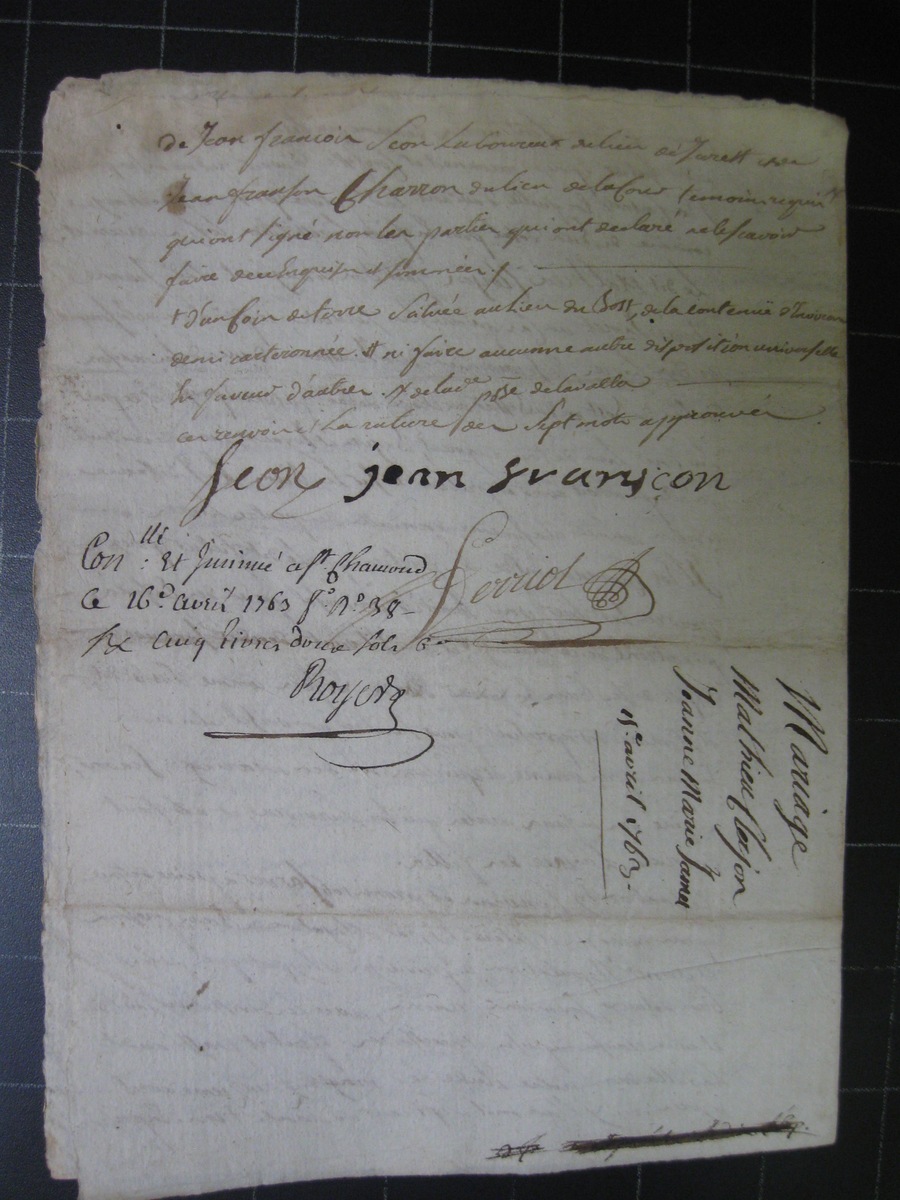 de Jean françois Seon Laboureur du lieu de et de
Jean franson Charron du lieu de la Cour temoins requis
qui ont signé non les parties qui ont declaré ne le scavoir
faire de ce Enquises et sommées ./.
+ d'un Coin de terre Scituée au Lieu du Bost, de la contenüe d'Environ
demi carteronnée. # ni faire aucunne autre disposition universelle
En faveur d'autres. de lad.e p.sse de lavalla
ces renvois & La rature des Sept mots approuvés
Seon jean françon
Perriol
Con.llé : Et Insinué a S.t Chamond
Ce 16.e avril 1763 f.o n.o 38
Rx Cinq livres douze sols 6
Royer
Mariage
Mathieu Clojon
Jeanne Marie James
15.e avril 1763.